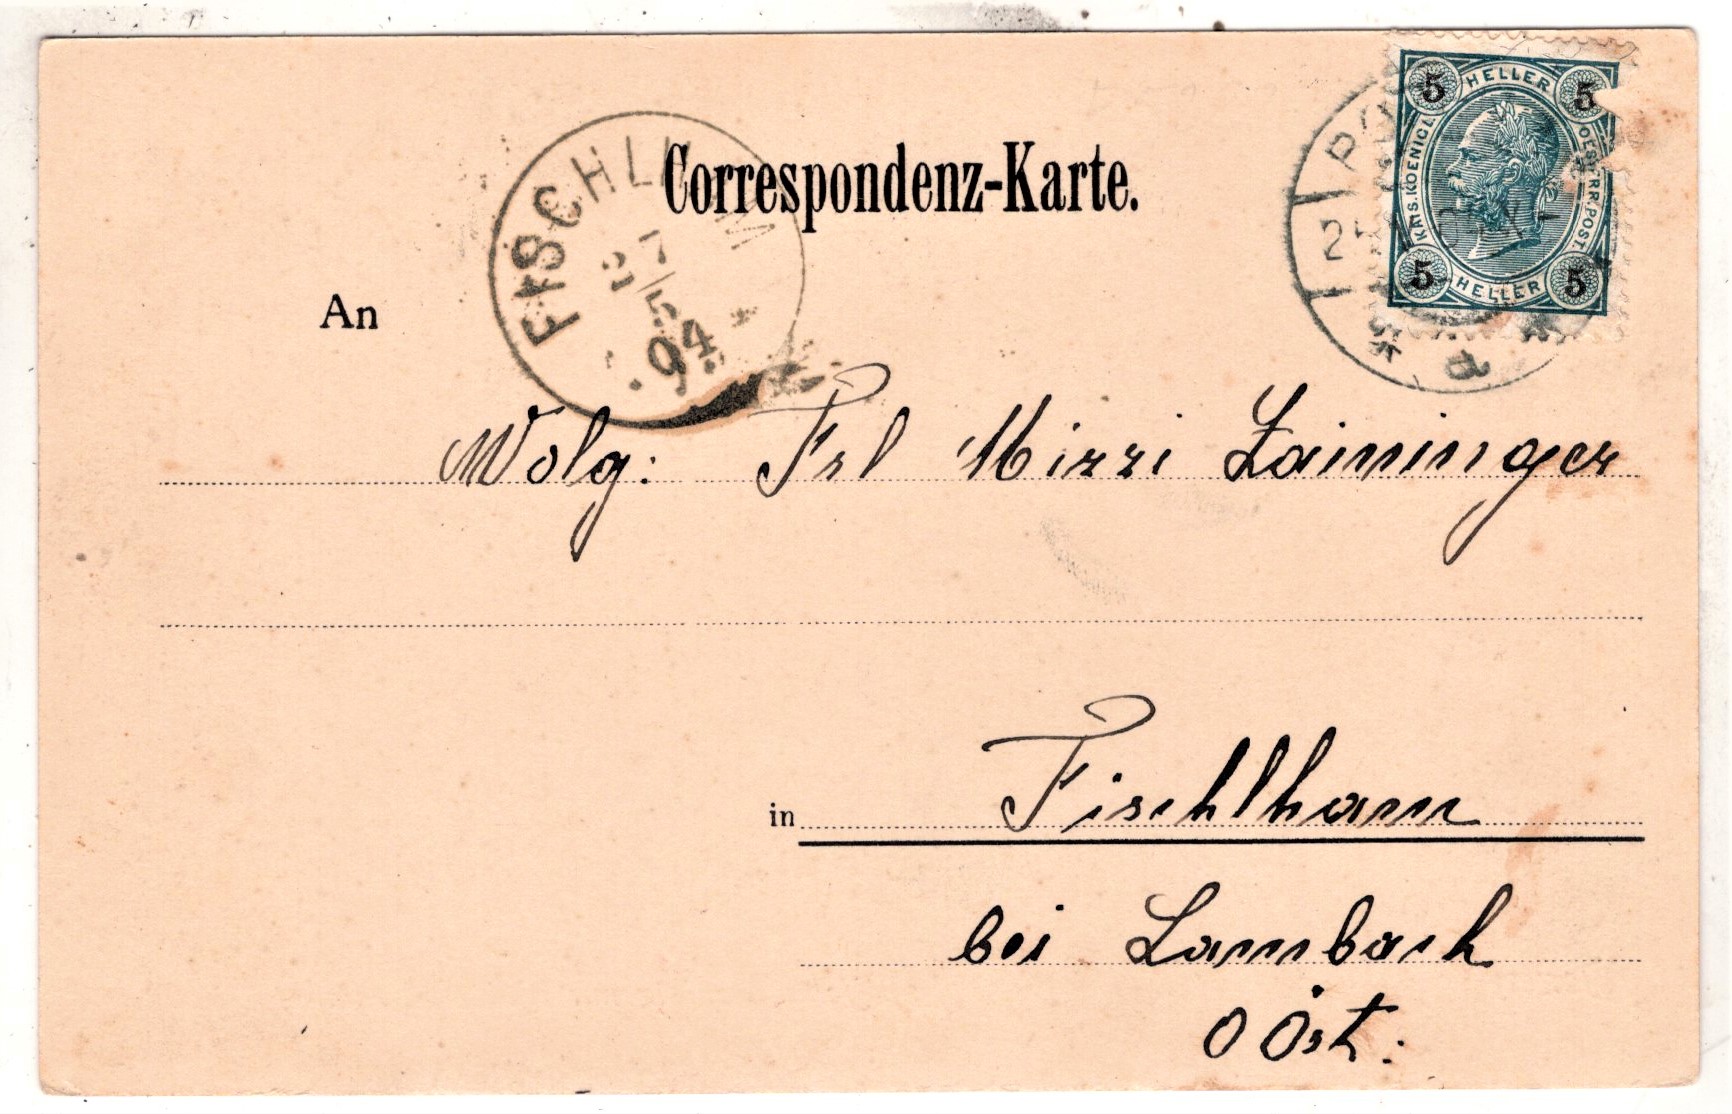 Correspondenz-Karte.
5 HELLER 5
KAIS. KOENIGL.
OESTERR. POST.
5 HELLER 5
FISCHLHAM
An
Wolg: Frl Mizzi Zaininger
in Fischlham
bei Lambach
O Öst: